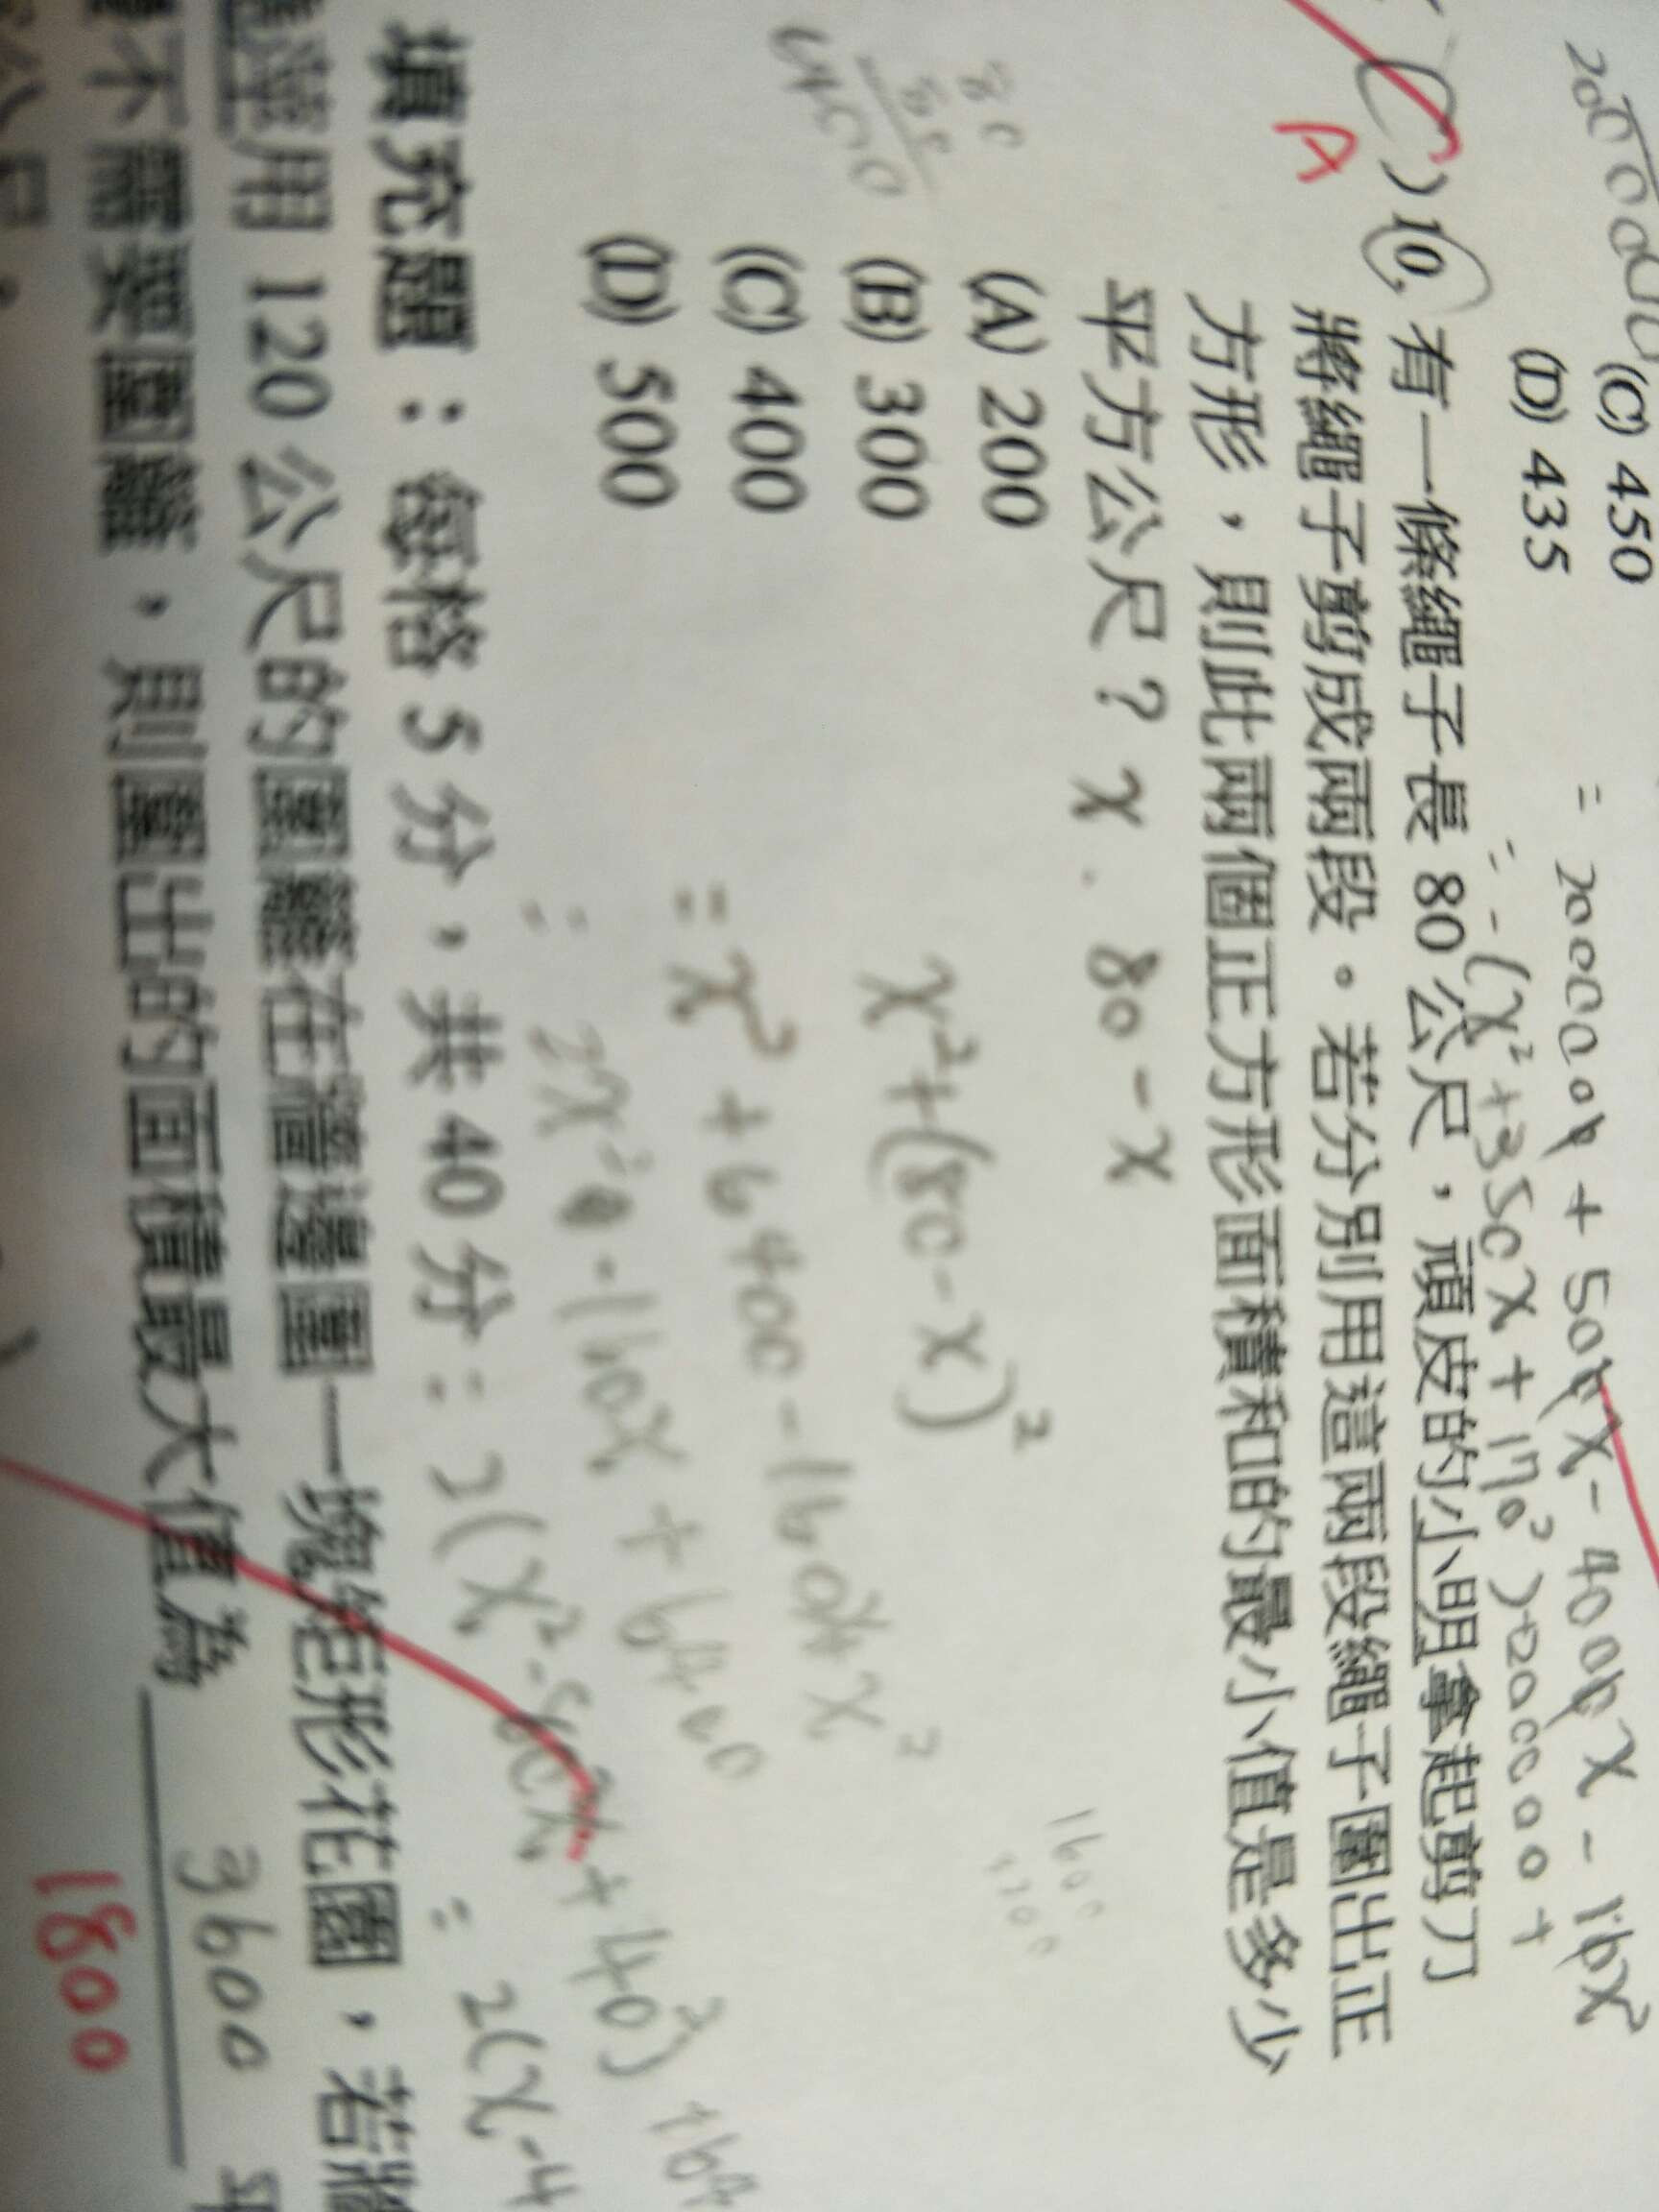 (C) 450
= 200000 + 500x - 400x - 16x²
(D) 435
= -(x² + 350x + 170²) + 200000 +
A
( ) 10. 有一條繩子長 80 公尺，頑皮的小明拿起剪刀
將繩子剪成兩段。若分別用這兩段繩子圍出正
方形，則此兩個正方形面積和的最小值是多少
平方公尺？ x . 80 - x
(A) 200
(B) 300
(C) 400
(D) 500
80
80
6400
1600
3200
x² + (80 - x)²
= x² + 6400 - 160x + x²
= 2x² - 160x + 6400
填充題：每格 5 分，共 40 分
= 2(x² - 80x + 40²)
= 2(x - 4
用 120 公尺的圍籬在牆邊圍一塊矩形花園，若牆
不需要圍籬，則圍出的面積最大值為 3600 平
1800